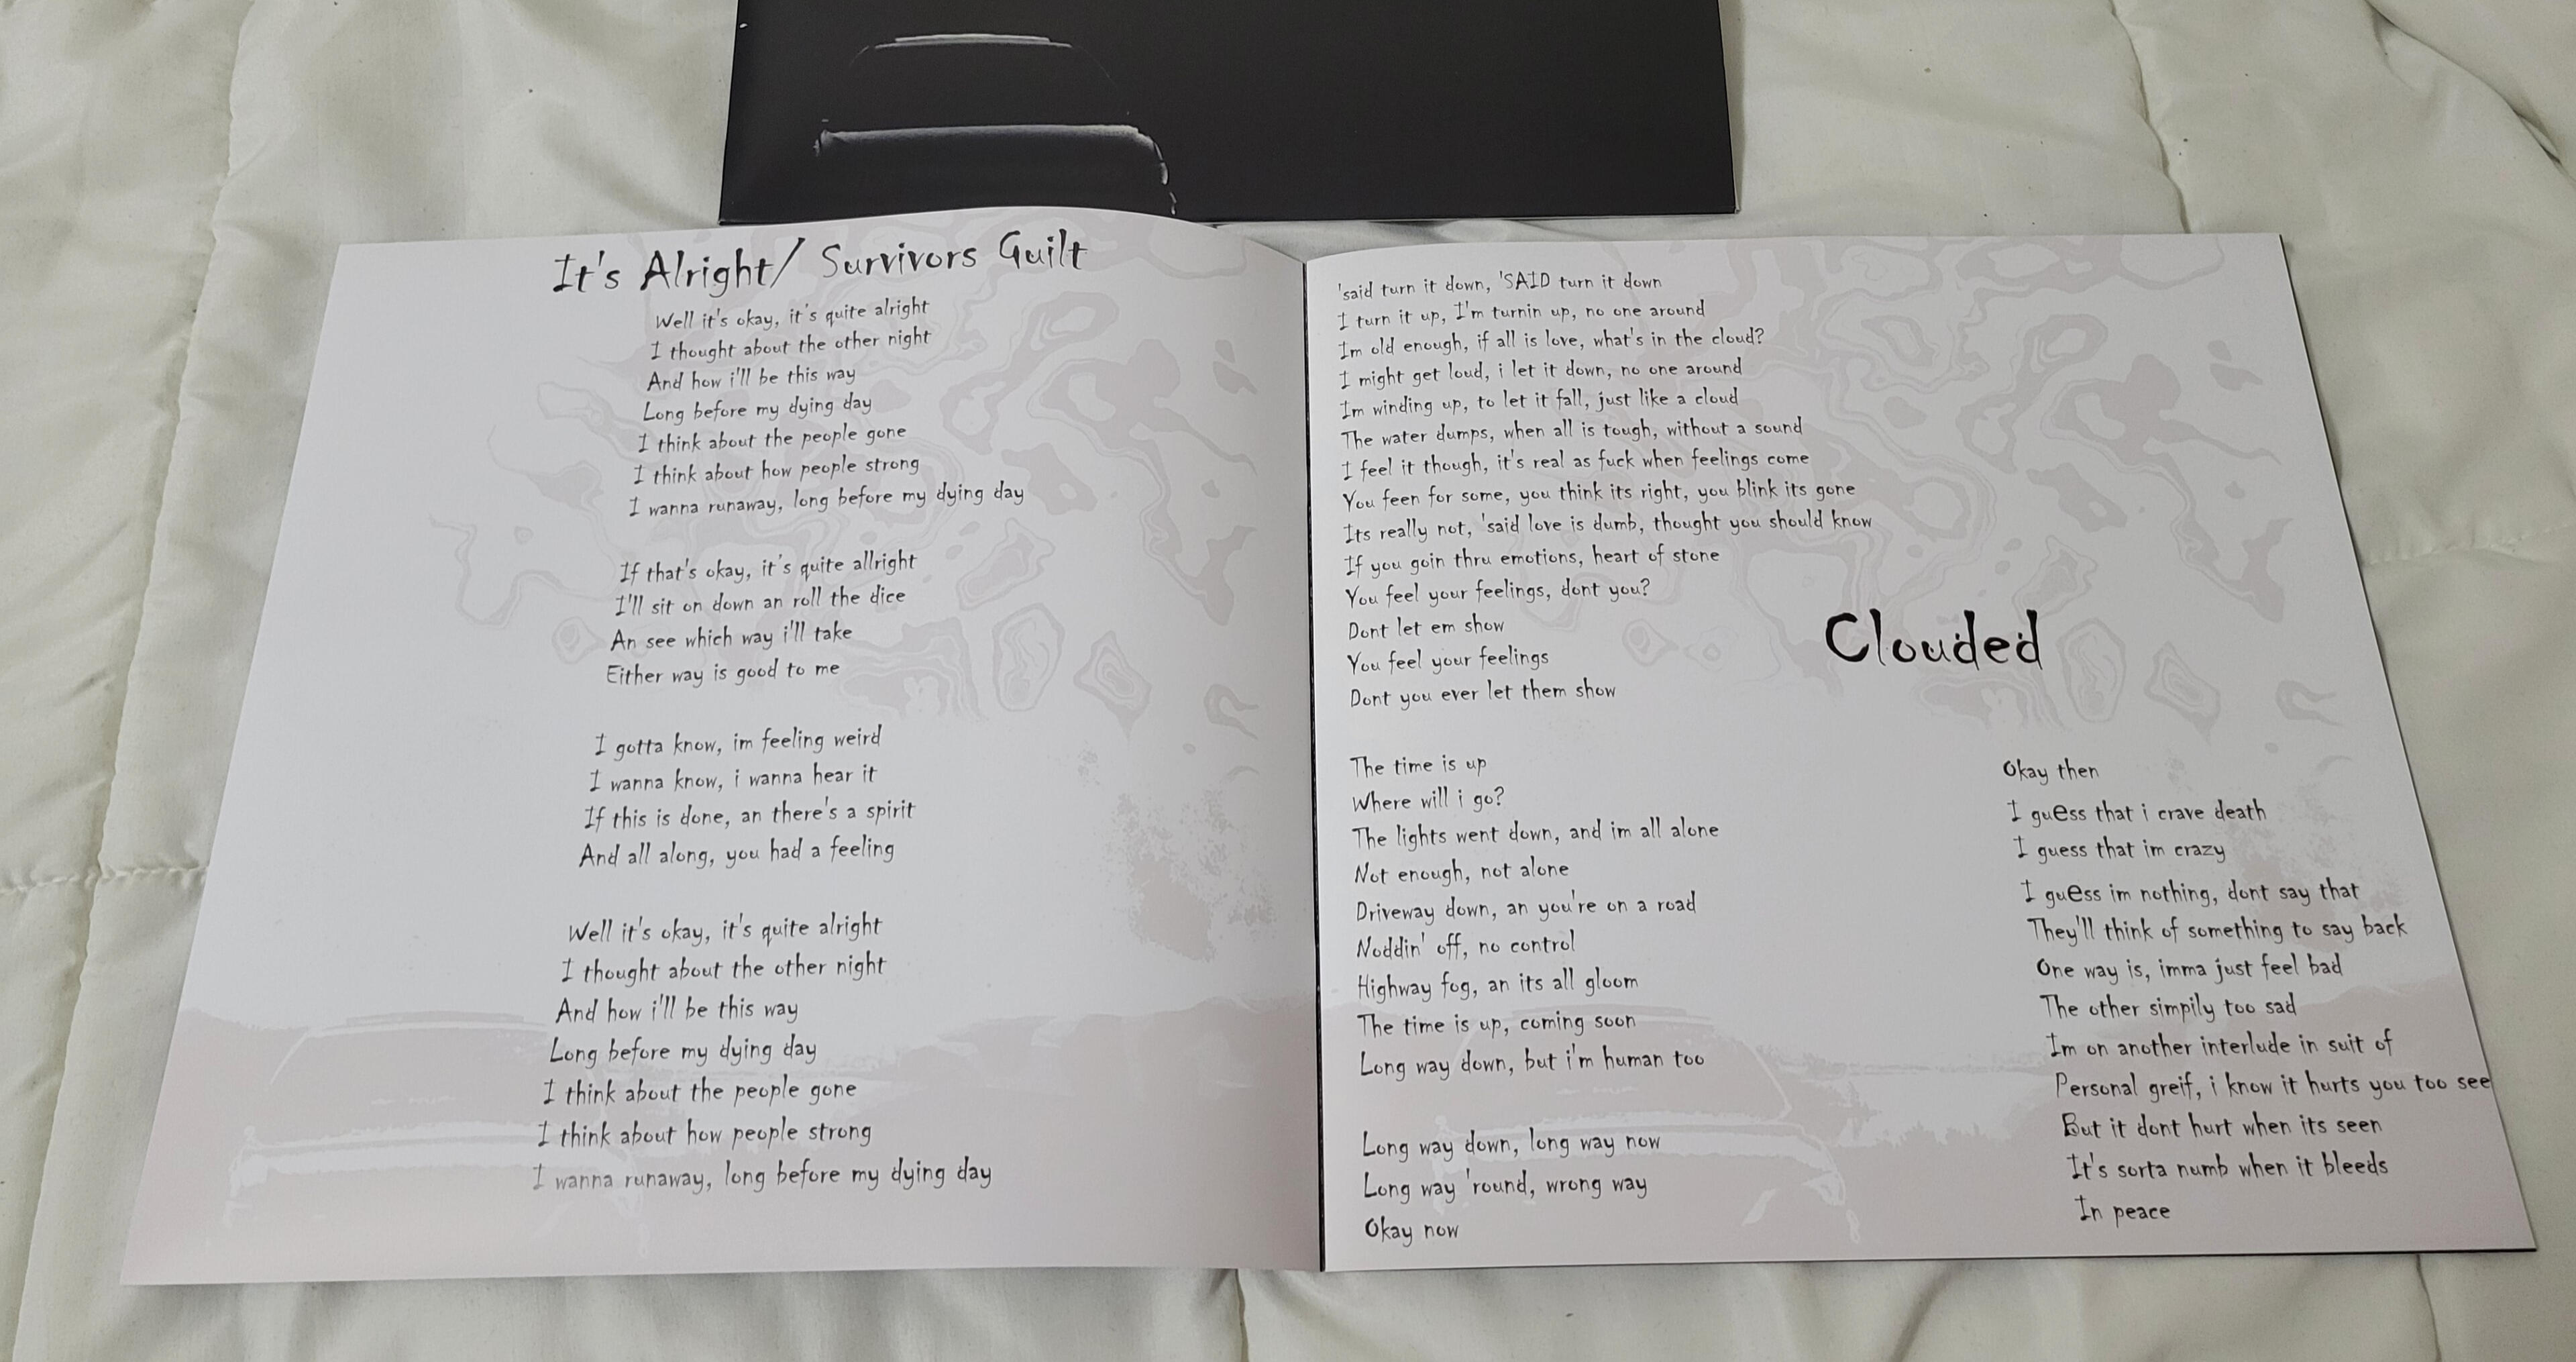 It's Alright/ Survivors Guilt
Well it's okay, it's quite alright
I thought about the other night
And how i'll be this way
Long before my dying day
I think about the people gone
I think about how people strong
I wanna runaway, long before my dying day
If that's okay, it's quite allright
I'll sit on down an roll the dice
An see which way i'll take
Either way is good to me
I gotta know, im feeling weird
I wanna know, i wanna hear it
If this is done, an there's a spirit
And all along, you had a feeling
Well it's okay, it's quite alright
I thought about the other night
And how i'll be this way
Long before my dying day
I think about the people gone
I think about how people strong
I wanna runaway, long before my dying day
'said turn it down, 'SAID turn it down
I turn it up, I'm turnin up, no one around
Im old enough, if all is love, what's in the cloud?
I might get loud, i let it down, no one around
Im winding up, to let it fall, just like a cloud
The water dumps, when all is tough, without a sound
I feel it though, it's real as fuck when feelings come
You feen for some, you think its right, you blink its gone
Its really not, 'said love is dumb, thought you should know
If you goin thru emotions, heart of stone
You feel your feelings, dont you?
Dont let em show
You feel your feelings
Dont you ever let them show
The time is up
Where will i go?
The lights went down, and im all alone
Not enough, not alone
Driveway down, an you're on a road
Noddin' off, no control
Highway fog, an its all gloom
The time is up, coming soon
Long way down, but i'm human too
Long way down, long way now
Long way 'round, wrong way
Okay now
Clouded
Okay then
I guess that i crave death
I guess that im crazy
I guess im nothing, dont say that
They'll think of something to say back
One way is, imma just feel bad
The other simpily too sad
Im on another interlude in suit of
Personal greif, i know it hurts you too see
But it dont hurt when its seen
It's sorta numb when it bleeds
In peace